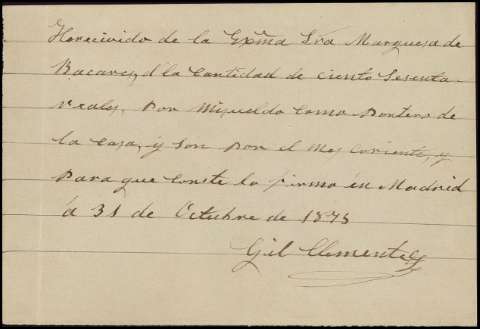 He recivido de la Exma Sra Marquesa de
Bacares, d la Cantidad de ciento Sesenta
reales, Por mi sueldo Como Portero de
la Casa, y son Por el Mes Coriente, y
Para que Conste lo firmo én Madrid
á 31 de Octubre de 1875
Gil Clemente